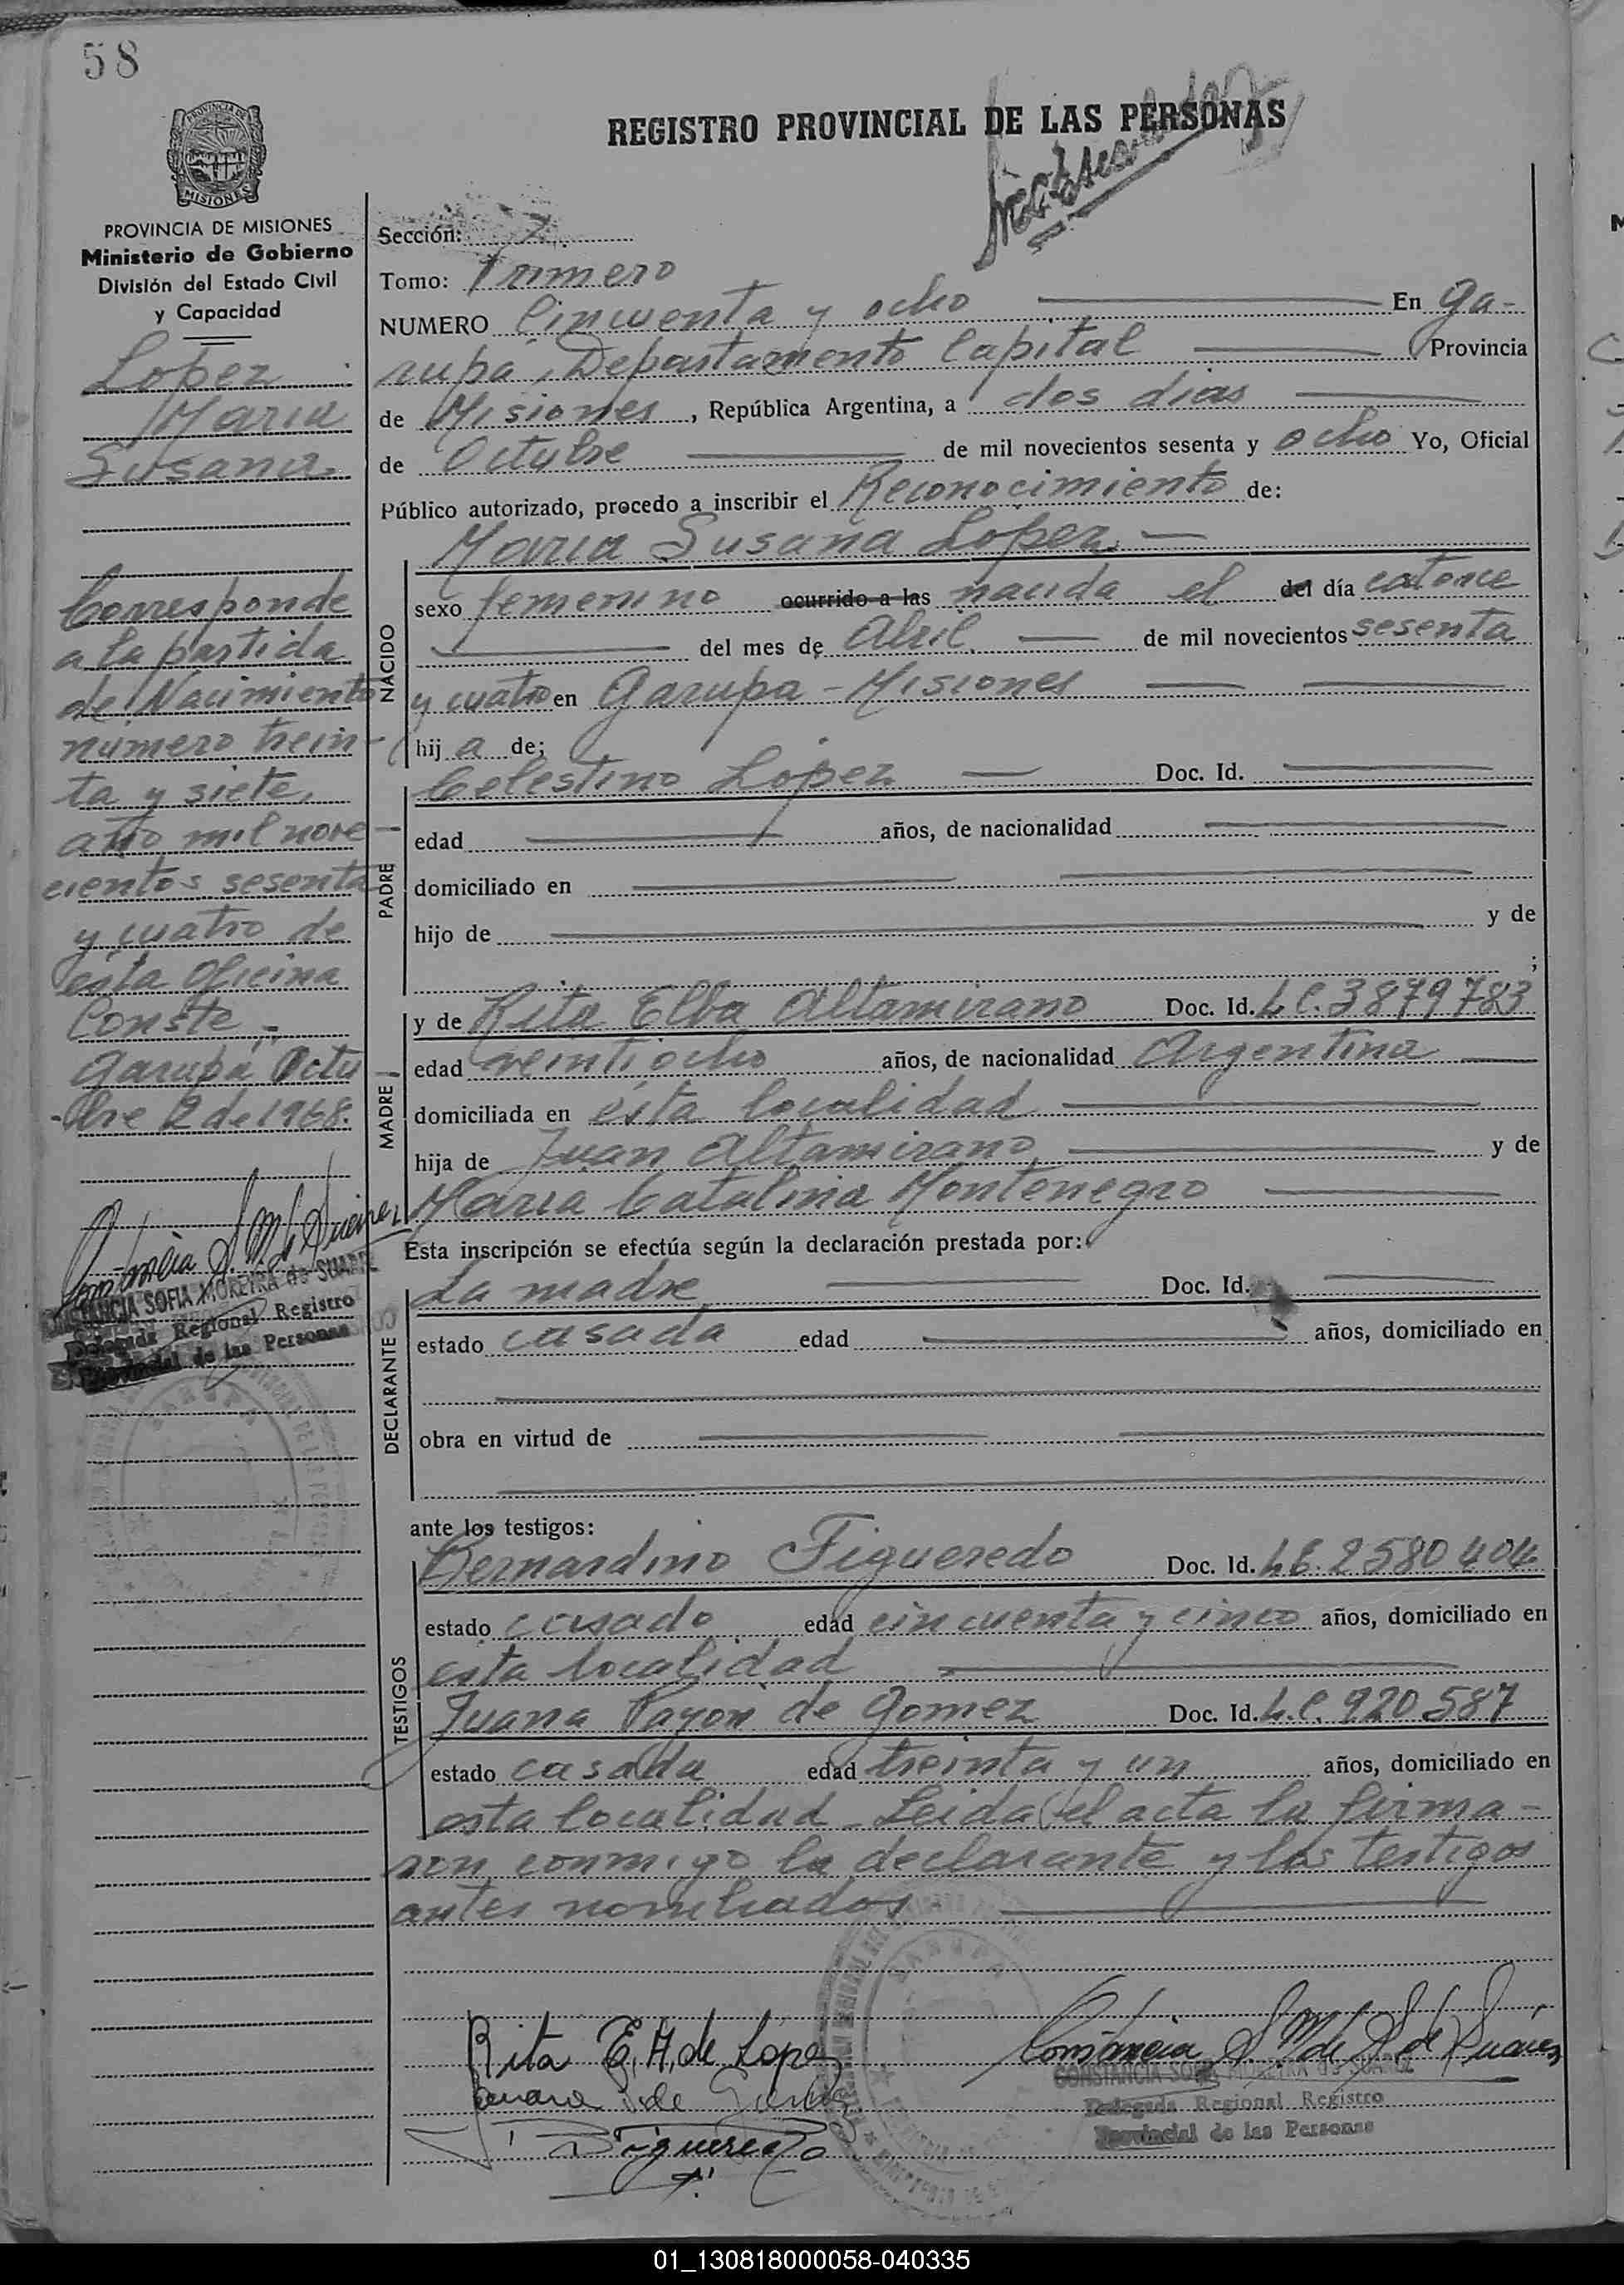 58
PROVINCIA DE
MISIONES
REGISTRO PROVINCIAL DE LAS PERSONAS
PROVINCIA DE MISIONES
Ministerio de Gobierno
División del Estado Civil
y Capacidad
Lopez
Maria
Susana
Corresponde
a la partida
de Nacimiento
número trein-
ta y siete,
año mil nove-
cientos sesenta
y cuatro de
esta Oficina
Conste.-
Garupá Octu
-bre 2 de 1968.
CONSTANCIA SOFIA MOREYRA de SUAREZ
Delegada Regional Registro
Provincial de las Personas
Sección:
Tomo: Primero
NUMERO Cincuenta y ocho En Ga-
rupá, Departamento Capital Provincia
de Misiones, República Argentina, a dos dias
de Octubre de mil novecientos sesenta y ocho Yo, Oficial
Público autorizado, procedo a inscribir el Reconocimiento de:
Maria Susana Lopez.
NACIDO
sexo femenino ocurrido a las nacida el del día catorce
del mes de Abril de mil novecientos sesenta
y cuatro en Garupa - Misiones
hij a de;
PADRE
Celestino Lopez Doc. Id.
edad años, de nacionalidad
domiciliado en
hijo de y de
;
MADRE
y de Rita Elba Altamirano Doc. Id. L.C. 3879783
edad veintiocho años, de nacionalidad Argentina
domiciliada en ésta localidad
hija de Juan Altamirano y de
Maria Catalina Montenegro
Esta inscripción se efectúa según la declaración prestada por:
DECLARANTE
La madre Doc. Id.
estado casada edad años, domiciliado en
obra en virtud de
ante los testigos:
TESTIGOS
Bernardino Figueredo Doc. Id. L.E. 2580404
estado casado edad cincuenta y cinco años, domiciliado en
esta localidad
Juana Payon de Gomez Doc. Id. L.C. 920.587
estado casada edad treinta y un años, domiciliado en
esta localidad - Leida el acta la firma-
ron conmigo la declarante y los testigos
antes nombrados
Rita E. A. de Lopez
CONSTANCIA SOFIA MOREYRA de SUAREZ
Delegada Regional Registro
Provincial de las Personas
01_130818000058-040335